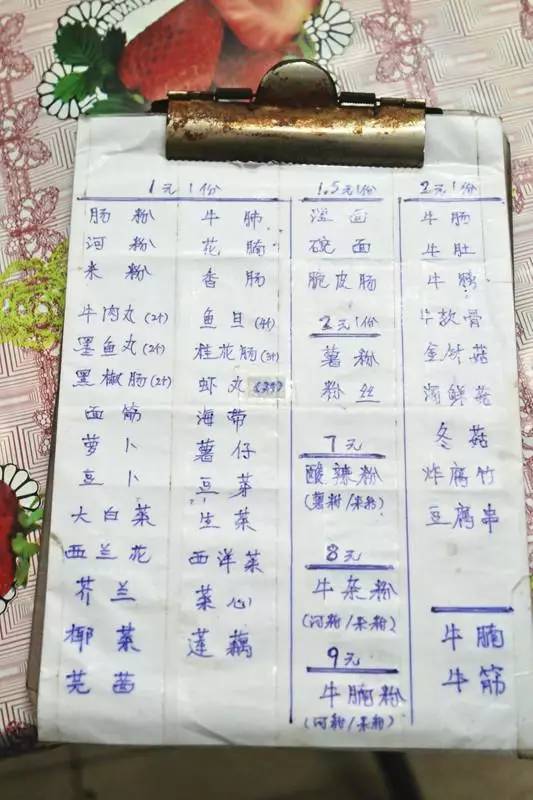 1元1份
肠粉
河粉
米粉
牛肉丸(2个)
墨鱼丸(2个)
黑椒肠(2个)
面筋
萝卜
豆卜
大白菜
西兰花
芥兰
椰菜
芫茜
牛肺
花腩
香肠
鱼旦(4个)
桂花肠(3个)
虾丸(3个)
海带
薯仔
豆芽
生菜
西洋菜
菜心
莲藕
1.5元1份
湿面
碗面
脆皮肠
2元1份
薯粉
粉丝
7元
酸辣粉
(薯粉/米粉)
8元
牛杂粉
(河粉/米粉)
9元
牛腩粉
(河粉/米粉)
2元1份
牛肠
牛肚
牛
牛软骨
金针菇
海鲜菇
冬菇
炸腐竹
豆腐串
牛腩
牛筋